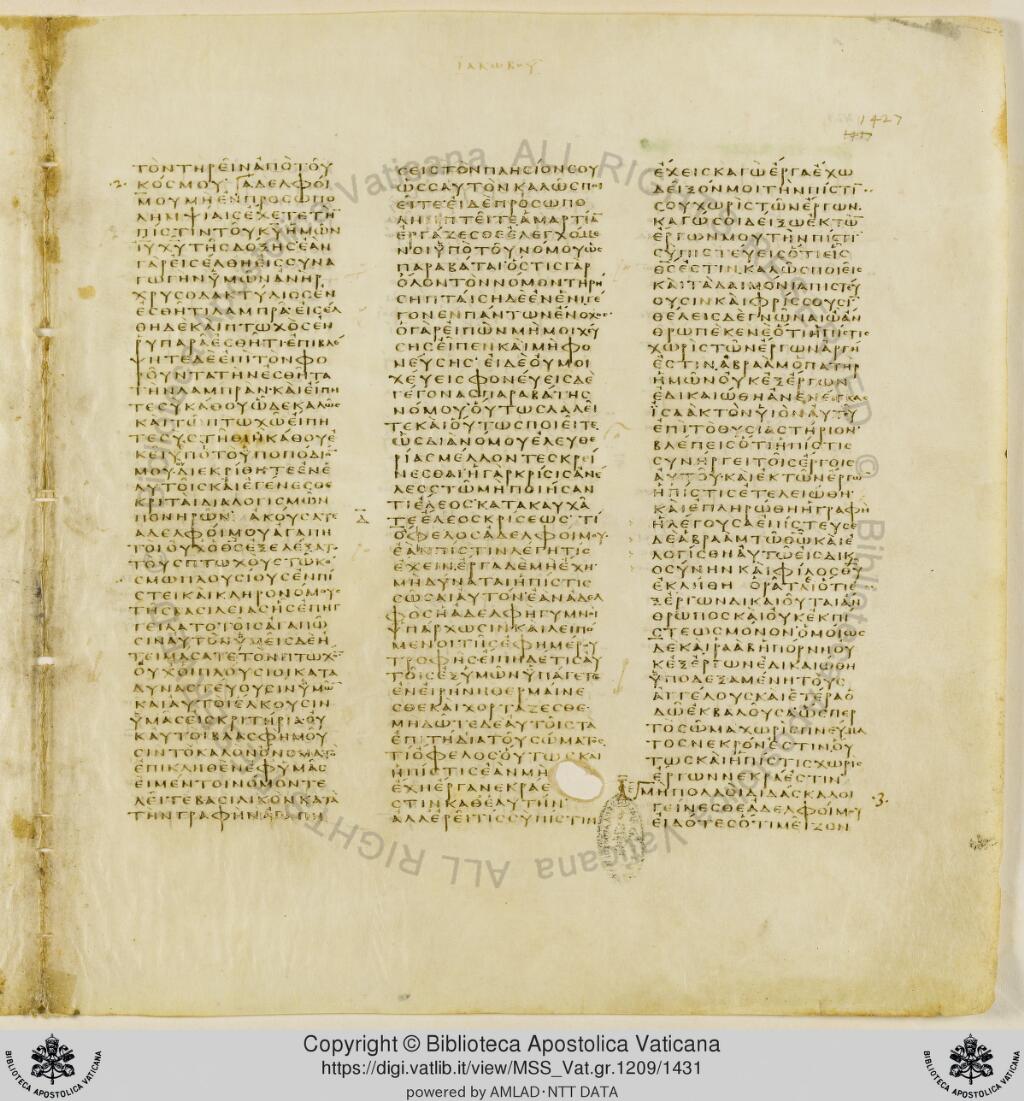 ΙΑΚΩΒΟΥ
1427
ΤΟΝΤΗΡΕΙΝΑΠΟΤΟΥ
2 ΚΟΣΜΟΥ ΑΔΕΛΦΟΙ
ΜΟΥΜΗΕΝΠΡΟΣΩΠΟ
ΛΗΜΨΙΑΙΣΕΧΕΤΕΤΗ
ΠΙΣΤΙΝΤΟΥΚΥΗΜΩΝ
ΙΥΧΥΤΗΣΔΟΞΗΣΕΑΝ
ΓΑΡΕΙΣΕΛΘΗΕΙΣΣΥΝΑ
ΓΩΓΗΝΥΜΩΝΑΝΗΡ
ΧΡΥΣΟΔΑΚΤΥΛΙΟΣΕΝ
ΕΣΘΗΤΙΛΑΜΠΡΑΕΙΣΕΛ
ΘΗΔΕΚΑΙΠΤΩΧΟΣΕΝ
ΡΥΠΑΡΑΕΣΘΗΤΙΕΠΙΒΛΕ
ΨΗΤΕΔΕΕΠΙΤΟΝΦΟ
ΡΟΥΝΤΑΤΗΝΕΣΘΗΤΑ
ΤΗΝΛΑΜΠΡΑΝΚΑΙΕΙΠΗ
ΤΕΣΥΚΑΘΟΥΩΔΕΚΑΛΩΣ
ΚΑΙΤΩΠΤΩΧΩΕΙΠΗ
ΤΕΣΥΣΤΗΘΙΗΚΑΘΟΥΕ
ΚΕΙΥΠΟΤΟΥΠΟΠΟΔΙΟ
ΜΟΥΔΙΕΚΡΙΘΗΤΕΕΝΕ
ΑΥΤΟΙΣΚΑΙΕΓΕΝΕΣΘΕ
ΚΡΙΤΑΙΔΙΑΛΟΓΙΣΜΩΝ
ΠΟΝΗΡΩΝ ΑΚΟΥΣΑΤΕ
ΑΔΕΛΦΟΙΜΟΥΑΓΑΠΗ
ΤΟΙΟΥΧΟΘΣΕΞΕΛΕΞΑΤ
ΤΟΥΣΠΤΩΧΟΥΣΤΩΚΟ
ΣΜΩΠΛΟΥΣΙΟΥΣΕΝΠΙ
ΣΤΕΙΚΑΙΚΛΗΡΟΝΟΜΟΥΣ
ΤΗΣΒΑΣΙΛΕΙΑΣΗΣΕΠΗΓ
ΓΕΙΛΑΤΟΤΟΙΣΑΓΑΠΩ
ΣΙΝΑΥΤΟΝΥΜΕΙΣΔΕΗ
ΤΕΙΜΑΣΑΤΕΤΟΝΠΤΩΧΟΝ
ΟΥΧΟΙΠΛΟΥΣΙΟΙΚΑΤΑ
ΔΥΝΑΣΤΕΥΟΥΣΙΝΥΜΩ
ΚΑΙΑΥΤΟΙΕΛΚΟΥΣΙΝ
ΥΜΑΣΕΙΣΚΡΙΤΗΡΙΑΟΥ
ΚΑΥΤΟΙΒΛΑΣΦΗΜΟΥ
ΣΙΝΤΟΚΑΛΟΝΟΝΟΜΑΤΟ
ΕΠΙΚΛΗΘΕΝΕΦΥΜΑΣ
ΕΙΜΕΝΤΟΙΝΟΜΟΝΤΕ
ΛΕΙΤΕΒΑΣΙΛΙΚΟΝΚΑΤΑ
ΤΗΝΓΡΑΦΗΝΑΓΑΠΗ
ΣΕΙΣΤΟΝΠΛΗΣΙΟΝΣΟΥ
ΩΣΣΑΥΤΟΝΚΑΛΩΣΠΟΙ
ΕΙΤΕΕΙΔΕΠΡΟΣΩΠΟ
ΛΗΜΠΤΕΙΤΕΑΜΑΡΤΙΑ
ΕΡΓΑΖΕΣΘΕΕΛΕΓΧΟΜΕ
ΝΟΙΥΠΟΤΟΥΝΟΜΟΥΩΣ
ΠΑΡΑΒΑΤΑΙΟΣΤΙΣΓΑΡ
ΟΛΟΝΤΟΝΝΟΜΟΝΤΗΡΗ
ΣΗΠΤΑΙΣΗΔΕΕΝΕΝΙΓΕ
ΓΟΝΕΝΠΑΝΤΩΝΕΝΟΧΟΣ
ΟΓΑΡΕΙΠΩΝΜΗΜΟΙΧΕΥ
ΣΗΣΕΙΠΕΝΚΑΙΜΗΦΟ
ΝΕΥΣΗΣ ΕΙΔΕΟΥΜΟΙ
ΧΕΥΕΙΣΦΟΝΕΥΕΙΣΔΕ
ΓΕΓΟΝΑΣΠΑΡΑΒΑΤΗΣ
ΝΟΜΟΥΟΥΤΩΣΛΑΛΕΙ
ΤΕΚΑΙΟΥΤΩΣΠΟΙΕΙΤΕ
ΩΣΔΙΑΝΟΜΟΥΕΛΕΥΘΕ
ΡΙΑΣΜΕΛΛΟΝΤΕΣΚΡΕΙ
ΝΕΣΘΑΙΗΓΑΡΚΡΙΣΙΣΑΝΕ
ΛΕΟΣΤΩΜΗΠΟΙΗΣΑΝ
ΤΙΕΛΕΟΣΚΑΤΑΚΑΥΧΑ
Δ ΤΕΕΛΕΟΣΚΡΙΣΕΩΣ ΤΙ
ΟΦΕΛΟΣΑΔΕΛΦΟΙΜΟΥ
ΕΑΝΠΙΣΤΙΝΛΕΓΗΤΙΣ
ΕΧΕΙΝΕΡΓΑΔΕΜΗΕΧΗ
ΜΗΔΥΝΑΤΑΙΗΠΙΣΤΙΣ
ΣΩΣΑΙΑΥΤΟΝΕΑΝΑΔΕΛ
ΦΟΣΗΑΔΕΛΦΗΓΥΜΝΟΙ
ΥΠΑΡΧΩΣΙΝΚΑΙΛΕΙΠΟ
ΜΕΝΟΙΤΗΣΕΦΗΜΕΡΟΥ
ΤΡΟΦΗΣΕΙΠΗΔΕΤΙΣΑΥ
ΤΟΙΣΕΞΥΜΩΝΥΠΑΓΕΤΕ
ΕΝΕΙΡΗΝΗΘΕΡΜΑΙΝΕ
ΣΘΕΚΑΙΧΟΡΤΑΖΕΣΘΕ
ΜΗΔΩΤΕΔΕΑΥΤΟΙΣΤΑ
ΕΠΙΤΗΔΙΑΤΟΥΣΩΜΑΤΟΣ
ΤΙΟΦΕΛΟΣΟΥΤΩΣΚΑΙ
ΗΠΙΣΤΙΣΕΑΝΜΗ
ΕΧΗΕΡΓΑΝΕΚΡΑΕ
ΣΤΙΝΚΑΘΕΑΥΤΗΝ
ΑΛΛΕΡΕΙΤΙΣΣΥΠΙΣΤΙΝ
ΕΧΕΙΣΚΑΓΩΕΡΓΑΕΧΩ
ΔΕΙΞΟΝΜΟΙΤΗΝΠΙΣΤΙ
ΣΟΥΧΩΡΙΣΤΩΝΕΡΓΩΝ
ΚΑΓΩΣΟΙΔΕΙΞΩΕΚΤΩ
ΕΡΓΩΝΜΟΥΤΗΝΠΙΣΤΙ
ΣΥΠΙΣΤΕΥΕΙΣΟΤΙΕΙΣ
ΘΣΕΣΤΙΝΚΑΛΩΣΠΟΙΕΙΣ
ΚΑΙΤΑΔΑΙΜΟΝΙΑΠΙΣΤΕΥ
ΟΥΣΙΝΚΑΙΦΡΙΣΣΟΥΣΙ
ΘΕΛΕΙΣΔΕΓΝΩΝΑΙΩΑΝ
ΘΡΩΠΕΚΕΝΕΟΤΙΗΠΙΣΤΙΣ
ΧΩΡΙΣΤΩΝΕΡΓΩΝΑΡΓΗ
ΕΣΤΙΝΑΒΡΑΑΜΟΠΑΤΗΡ
ΗΜΩΝΟΥΚΕΞΕΡΓΩΝ
ΕΔΙΚΑΙΩΘΗΑΝΕΝΕΓΚΑΣ
ΙΣΑΑΚΤΟΝΥΙΟΝΑΥΤΟΥ
ΕΠΙΤΟΘΥΣΙΑΣΤΗΡΙΟΝ
ΒΛΕΠΕΙΣΟΤΙΗΠΙΣΤΙΣ
ΣΥΝΗΡΓΕΙΤΟΙΣΕΡΓΟΙΣ
ΑΥΤΟΥΚΑΙΕΚΤΩΝΕΡΓΩ
ΗΠΙΣΤΙΣΕΤΕΛΕΙΩΘΗ
ΚΑΙΕΠΛΗΡΩΘΗΗΓΡΑΦΗ
ΗΛΕΓΟΥΣΑΕΠΙΣΤΕΥΣΕ
ΔΕΑΒΡΑΑΜΤΩΘΩΚΑΙΕ
ΛΟΓΙΣΘΗΑΥΤΩΕΙΣΔΙΚΑΙ
ΟΣΥΝΗΝΚΑΙΦΙΛΟΣΘΥ
ΕΚΛΗΘΗ ΟΡΑΤΑΙΟΤΙΕ
ΞΕΡΓΩΝΔΙΚΑΙΟΥΤΑΙΑΝ
ΘΡΩΠΟΣΚΑΙΟΥΚΕΚΠΙ
ΣΤΕΩΣΜΟΝΟΝΟΜΟΙΩΣ
ΔΕΚΑΙΡΑΑΒΗΠΟΡΝΗΟΥ
ΚΕΞΕΡΓΩΝΕΔΙΚΑΙΩΘΗ
ΥΠΟΔΕΞΑΜΕΝΗΤΟΥΣ
ΑΓΓΕΛΟΥΣΚΑΙΕΤΕΡΑΟ
ΔΩΕΚΒΑΛΟΥΣΑΩΣΠΕΡ
ΤΟΣΩΜΑΧΩΡΙΣΠΝΕΥΜΑ
ΤΟΣΝΕΚΡΟΝΕΣΤΙΝΟΥ
ΤΩΣΚΑΙΗΠΙΣΤΙΣΧΩΡΙΣ
ΕΡΓΩΝΝΕΚΡΑΕΣΤΙΝ
ΜΗΠΟΛΛΟΙΔΙΔΑΣΚΑΛΟΙ
ΓΕΙΝΕΣΘΕΑΔΕΛΦΟΙΜΟΥ 3
ΕΙΔΟΤΕΣΟΤΙΜΕΙΖΟΝ
Vaticana ALL RIGHT
Copyright © Biblioteca Apostolica Vaticana
https://digi.vatlib.it/view/MSS_Vat.gr.1209/1431
powered by AMLAD·NTT DATA
BIBLIOTECA APOSTOLICA VATICANA
BIBLIOTECA APOSTOLICA VATICANA